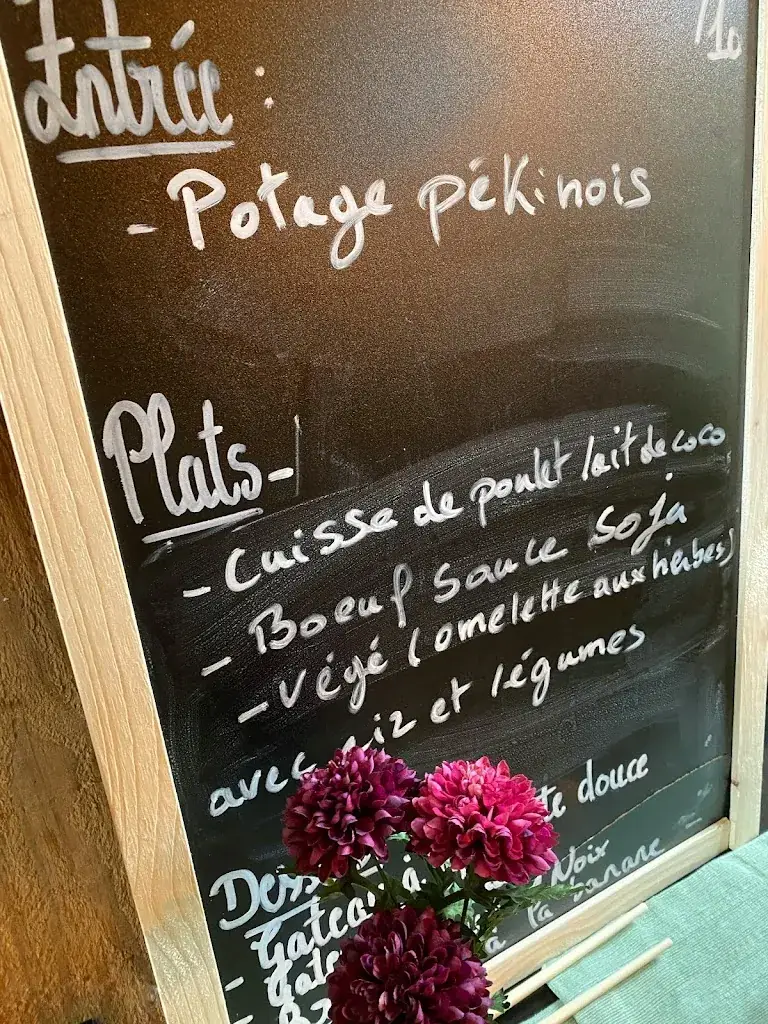 /10
Entrée :
- Potage pékinois
Plats -
- Cuisse de poulet lait de coco
- Boeuf sauce soja
- Végé (omelette aux herbes)
avec riz et légumes
douce
Gateau à Noix
à la banane